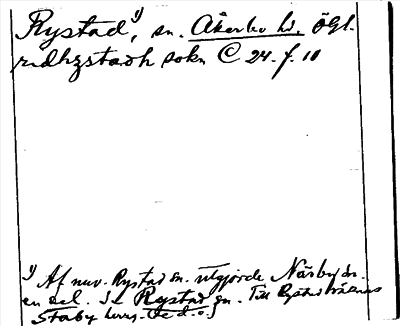 Rystad, 1) sn. Åkerbo hd. Ögl.
ridhzstadh sokn C 24. f. 10
1) Af nuv. Rystad sn. utgjorde Närby sn.
en del. Se Rystad sn. Till Rystad
Staby